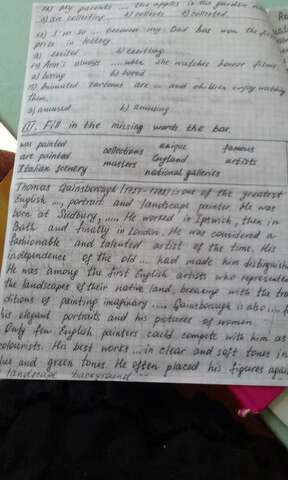 11) My parents ... the apples in the garden
a) are collecting b) collects c) collected.
12) I'm so ... because my Dad has won the first
prize in lottery.
a) excited b) exciting
13) Ann's always ... when she watches horror films.
a) boring b) bored
14) Animated cartoons are ... and children enjoy watching
them.
a) amused b) amusing
III. Fill in the missing words the bar.
was painted collections unique famous
are painted masters England artists
Italian scenery national galleries
Thomas Gainsborough (1727-1788) is one of the greatest
English ..., portrait and landscape painter. He was
born at Sudbury, ..... He worked in Ipswich, then in
Bath and finally in London. He was considered a
fashionable and talented artist of the time. His
independence of the old ... had made him distinguish
He was among the first English artists who represented
the landscapes of their native land, breaking with the tra-
ditions of painting imaginary ..... Gainsborough is also ... f
his elegant portraits and his pictures of women
Only few English painters could compete with him as
colourists. His best works ... in clear and soft tones in
lue and green tones. He often placed his figures again
landscape background ...